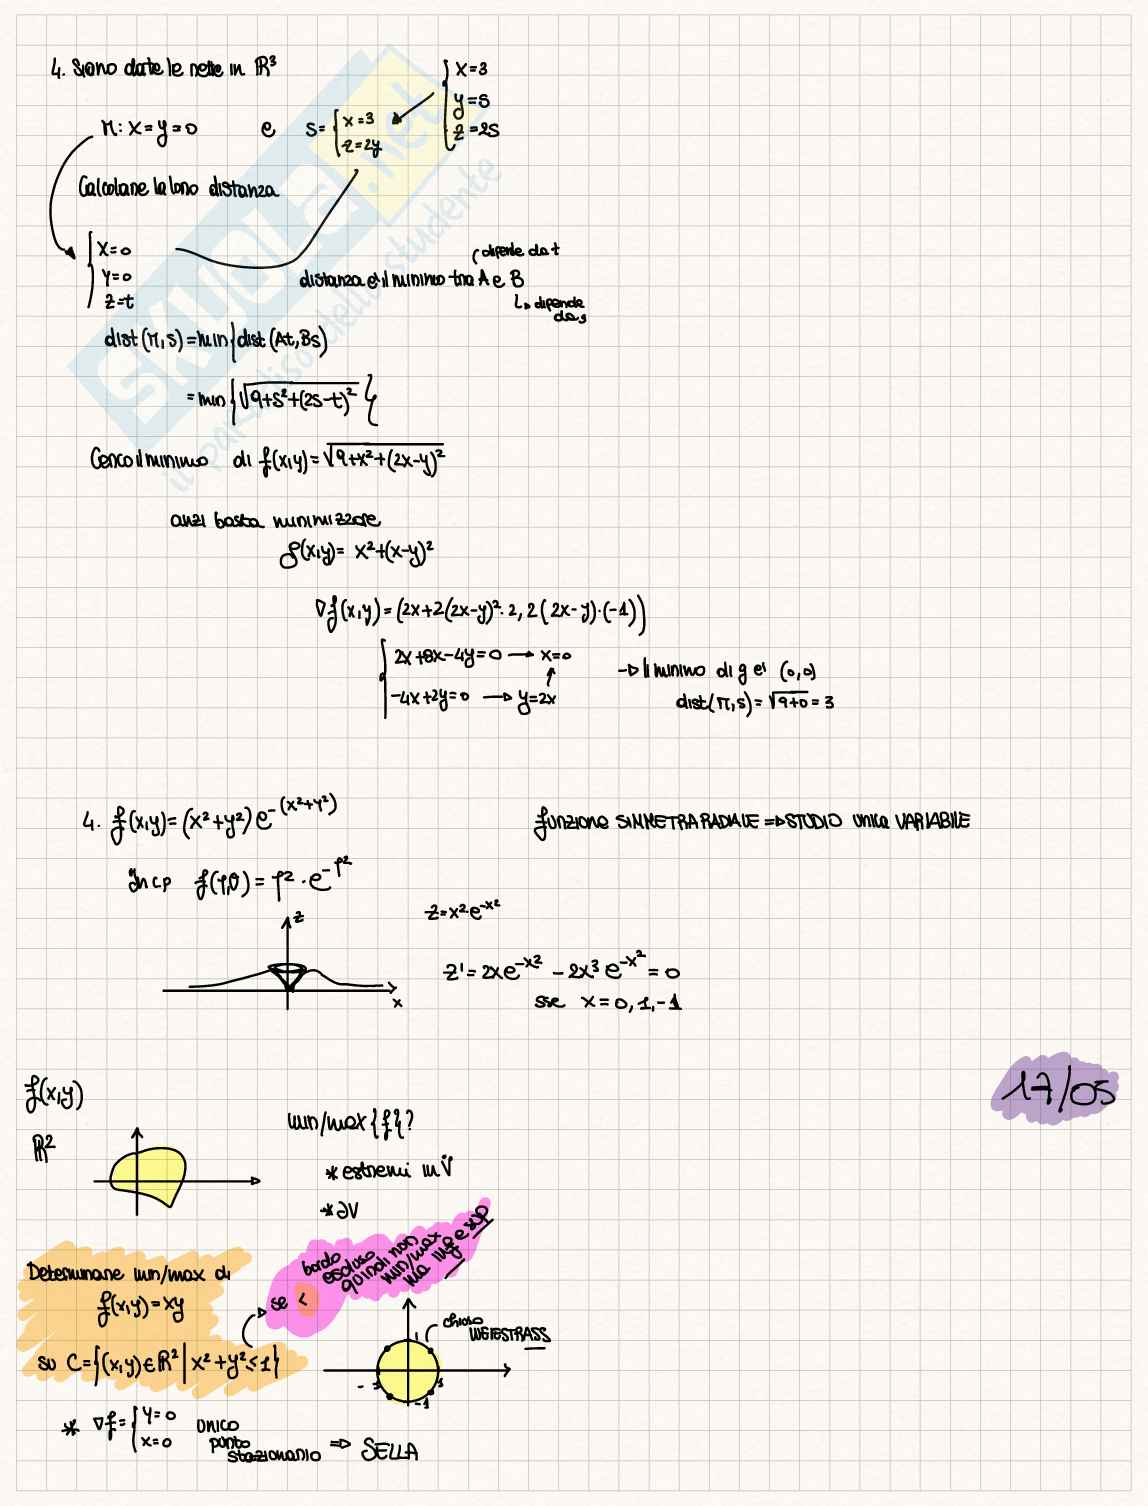 4. Siano date le rette in ℝ³
r: x=y=0 e s= { x=3 z=2y
{ x=3 y=s z=2s
Calcolare la loro distanza
{ x=0 y=0 z=t
distanza è il minimo tra A e B
dipende da t
dipende da s
dist(r,s)=min{dist(At,Bs)
=min{√9+s²+(2s-t)²}
Cerco il minimo di f(x,y)=√9+x²+(2x-y)²
anzi basta minimizzare
g(x,y)= x²+(x-y)²
∇f(x,y)=(2x+2(2x-y)²·2, 2(2x-y)·(-1))
{ 2x+8x-4y=0 → x=0
-4x+2y=0 → y=2x
→ Il minimo di g è (0,0)
dist(r,s)=√9+0=3
4. f(x,y)=(x²+y²)e^-(x²+y²)
funzione SIMMETRA RADIALE ⇒ STUDIO unica VARIABILE
In cp f(ρ,θ)=ρ²·e^-ρ²
z=x²·e^-x²
z
x
z'=2xe^-x² - 2x³e^-x²=0
sse x=0,1,-1
17/05
f(x,y)
ℝ²
min/max{f}?
* estremi in V̊
* ∂V
Determinare min/max di
f(x,y)=xy
su C={(x,y)∈ℝ² | x²+y²≤1}
se <
bordo
escluso
quindi non
min/max
ma inf e sup
chiuso
WEIESTRASS
1
-1
1
-1
* ∇f={ y=0 x=0
unico
punto
stazionario ⇒ SELLA
SKUOLA.net
il paradiso dello studente